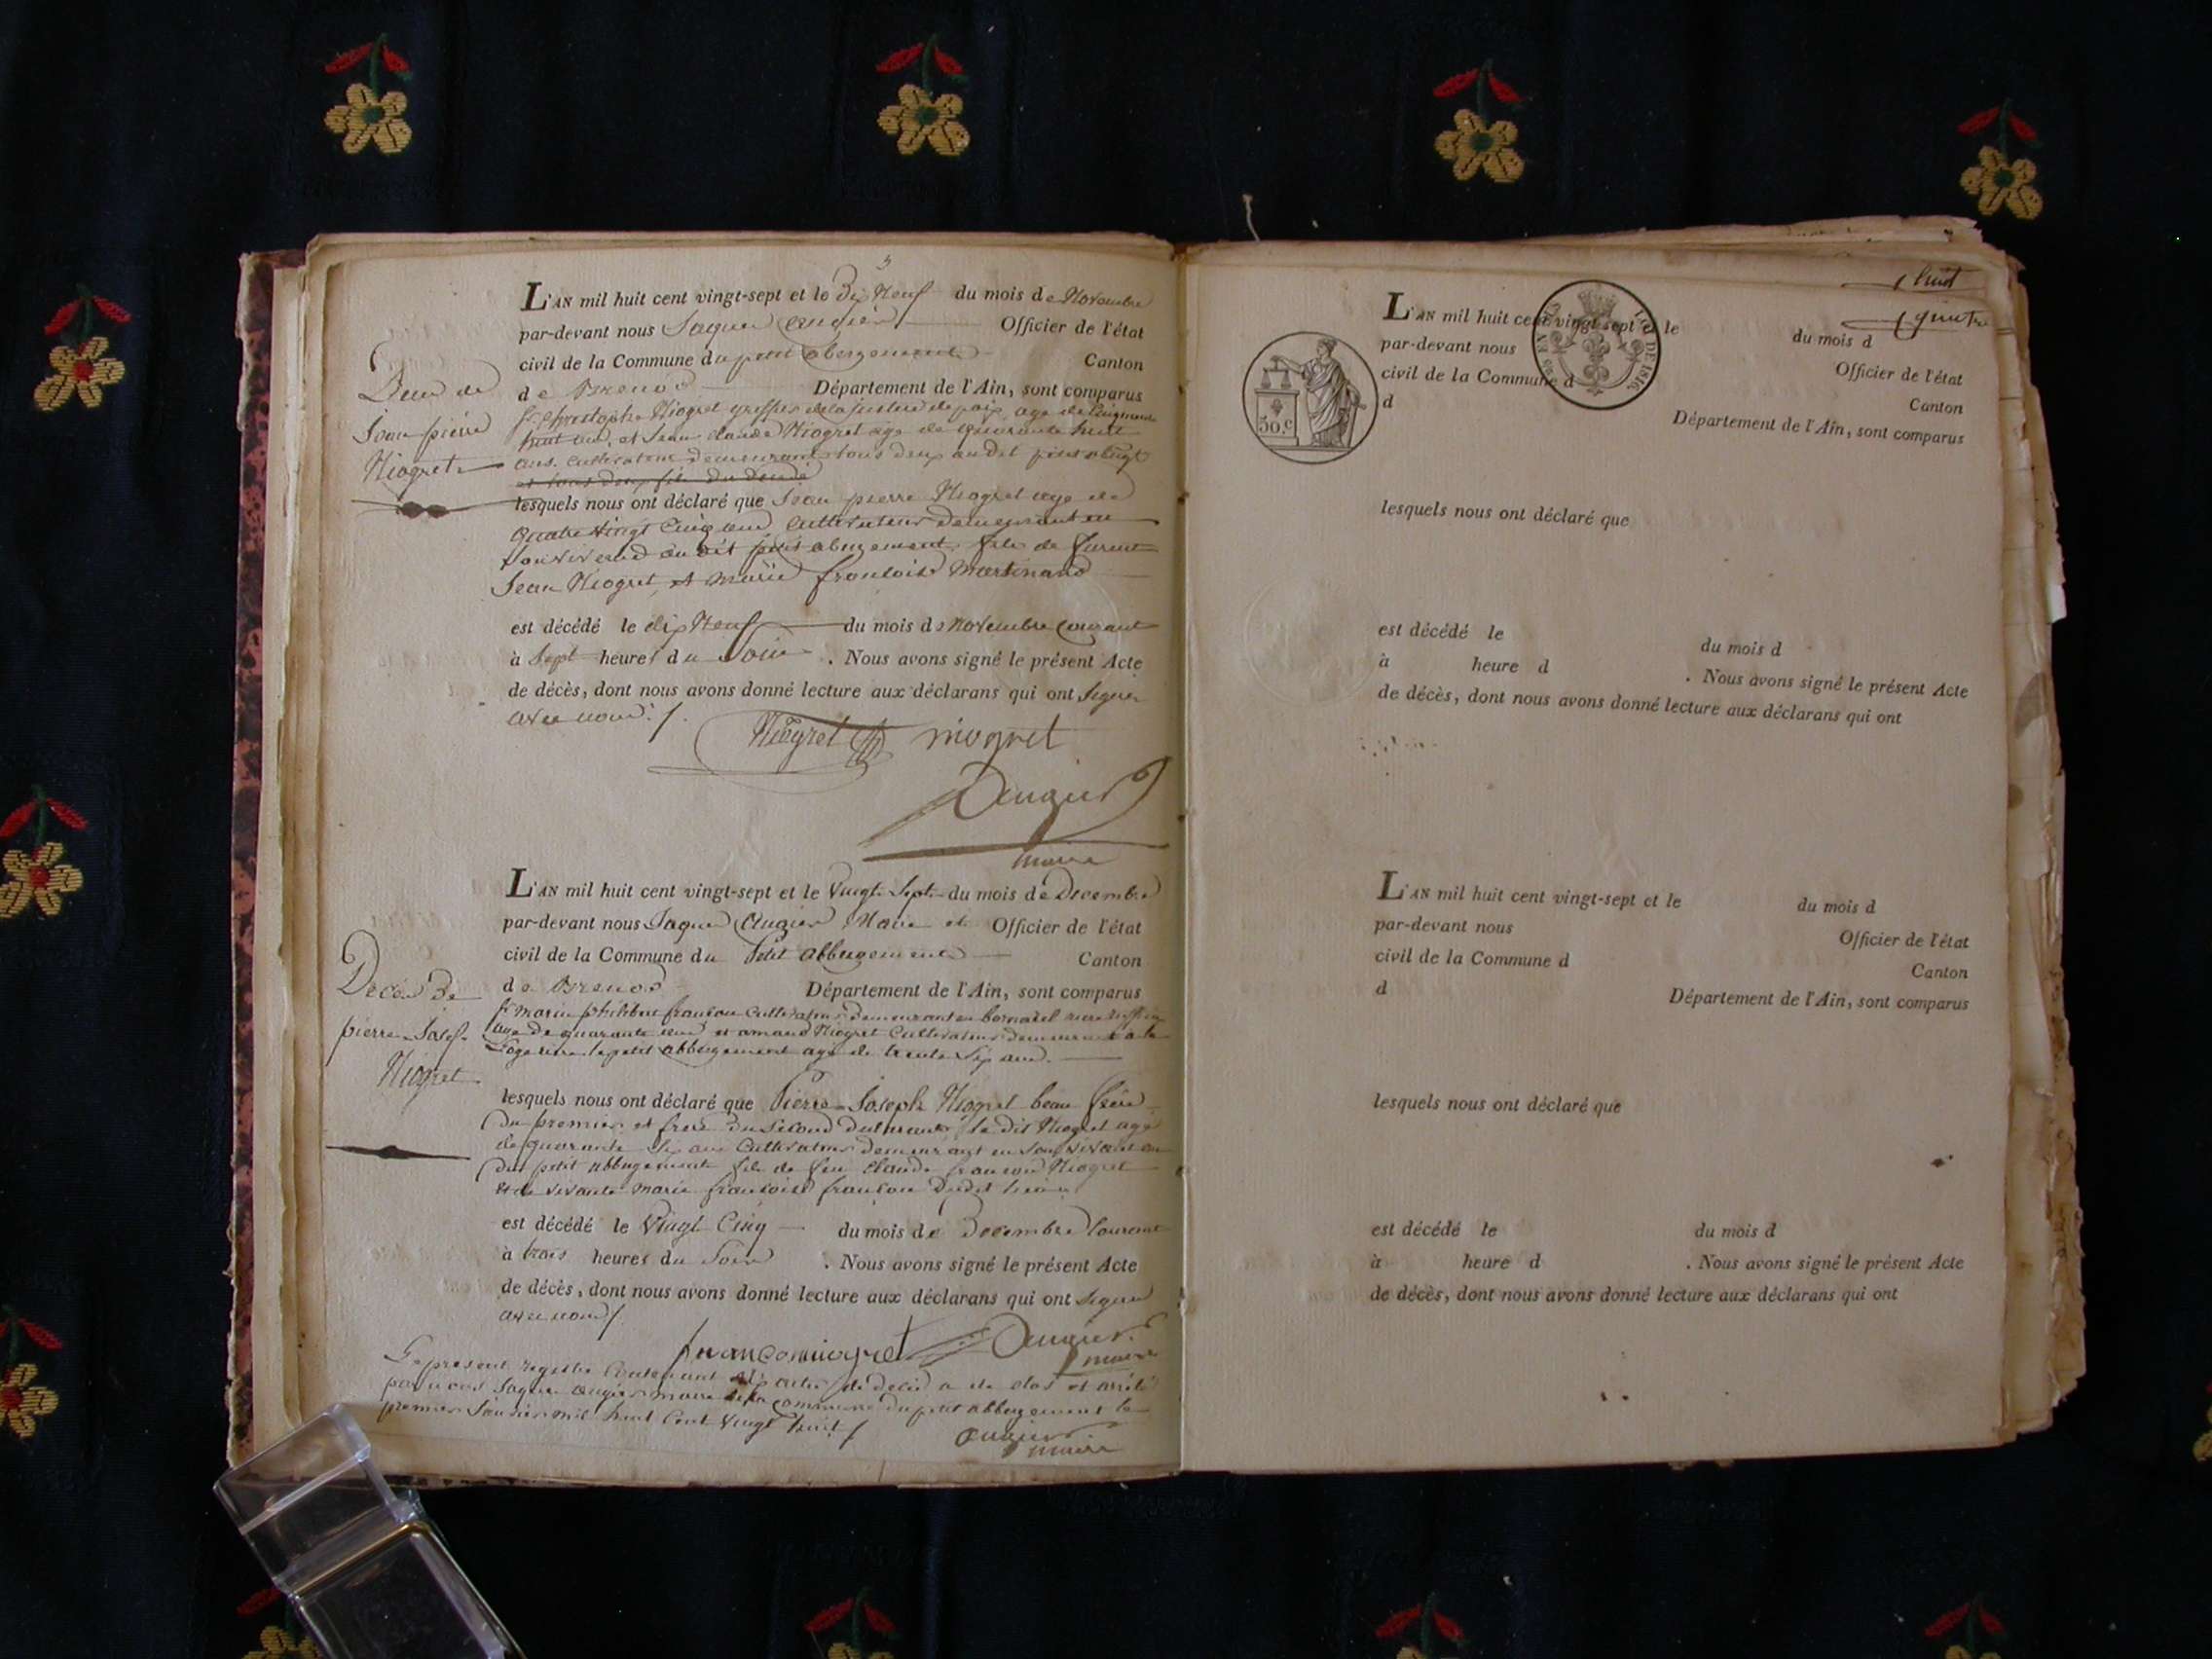 L'AN mil huit cent vingt-sept et le Dix Neuf du mois de Novembre
par-devant nous Jaques Augier Officier de l'état
civil de la Commune du petit abergement Canton
de Brenod Département de l'Ain, sont comparus
Jean pierre
Niogret
Sr Christophe Niogret greffier de la justice de paix age de
huit ans, et Jean Claude Niogret age de quarante huit
ans. Cultivateurs demeurant tous deux au dit petit aberg.t
et tous deux fils du décédé
lesquels nous ont déclaré que Jean pierre Niogret age de
quatre Vingt Cinq ans Cultivateur demeurant en
son vivant au dit petit abergement fils de furent
Jean Niogret et Marie françoise Martinand
est décédé le dix Neuf du mois de Novembre Courant
à Sept heures du Soir . Nous avons signé le présent Acte
de décès, dont nous avons donné lecture aux déclarans qui ont Signer
avec nous ./.
Niogret niogret
Augier
maire
L'AN mil huit cent vingt-sept et le Vingt Sept du mois de Decembre
par-devant nous Jaques Augier Maire et Officier de l'état
civil de la Commune du Petit Abbergement Canton
de Brenod Département de l'Ain, sont comparus
Deces De
pierre Josef
Niogret
Sr Marin philibert françon Cultivateur demeurant en
age de quarante ans et amand Niogret Cultivateur demeurant a la
le petit abbergement age de trente Six ans.
lesquels nous ont déclaré que Pierre Joseph Niogret beau frère
Du premier et frere du Second le dit Niogret agé
de quarante Six ans Cultivateur demeurant en Son vivant au
dit petit abbergement fils de feu Claude françois Niogret
et de vivante Marie françoise françon dudit lieu
est décédé le Vingt Cinq du mois de Decembre Courant
à trois heures du Soir . Nous avons signé le présent Acte
de décès, dont nous avons donné lecture aux déclarans qui ont Signer
avec nous /.
françon niogret Augier
maire
Le present registre Contenant actes de deces a ete clos et arrêté
par nous Jaques Augier maire de la Commune du petit abbergement le
premier Janvier mil huit Cent Vingt huit /.
Augier
maire
huit
30.c
LOI DE 1816.
L'AN mil huit cent vingt-sept et le du mois d
par-devant nous Officier de l'état
civil de la Commune d Canton
d Département de l'Ain, sont comparus
lesquels nous ont déclaré que
est décédé le du mois d
à heure d . Nous avons signé le présent Acte
de décès, dont nous avons donné lecture aux déclarans qui ont
L'AN mil huit cent vingt-sept et le du mois d
par-devant nous Officier de l'état
civil de la Commune d Canton
d Département de l'Ain, sont comparus
lesquels nous ont déclaré que
est décédé le du mois d
à heure d . Nous avons signé le présent Acte
de décès, dont nous avons donné lecture aux déclarans qui ont